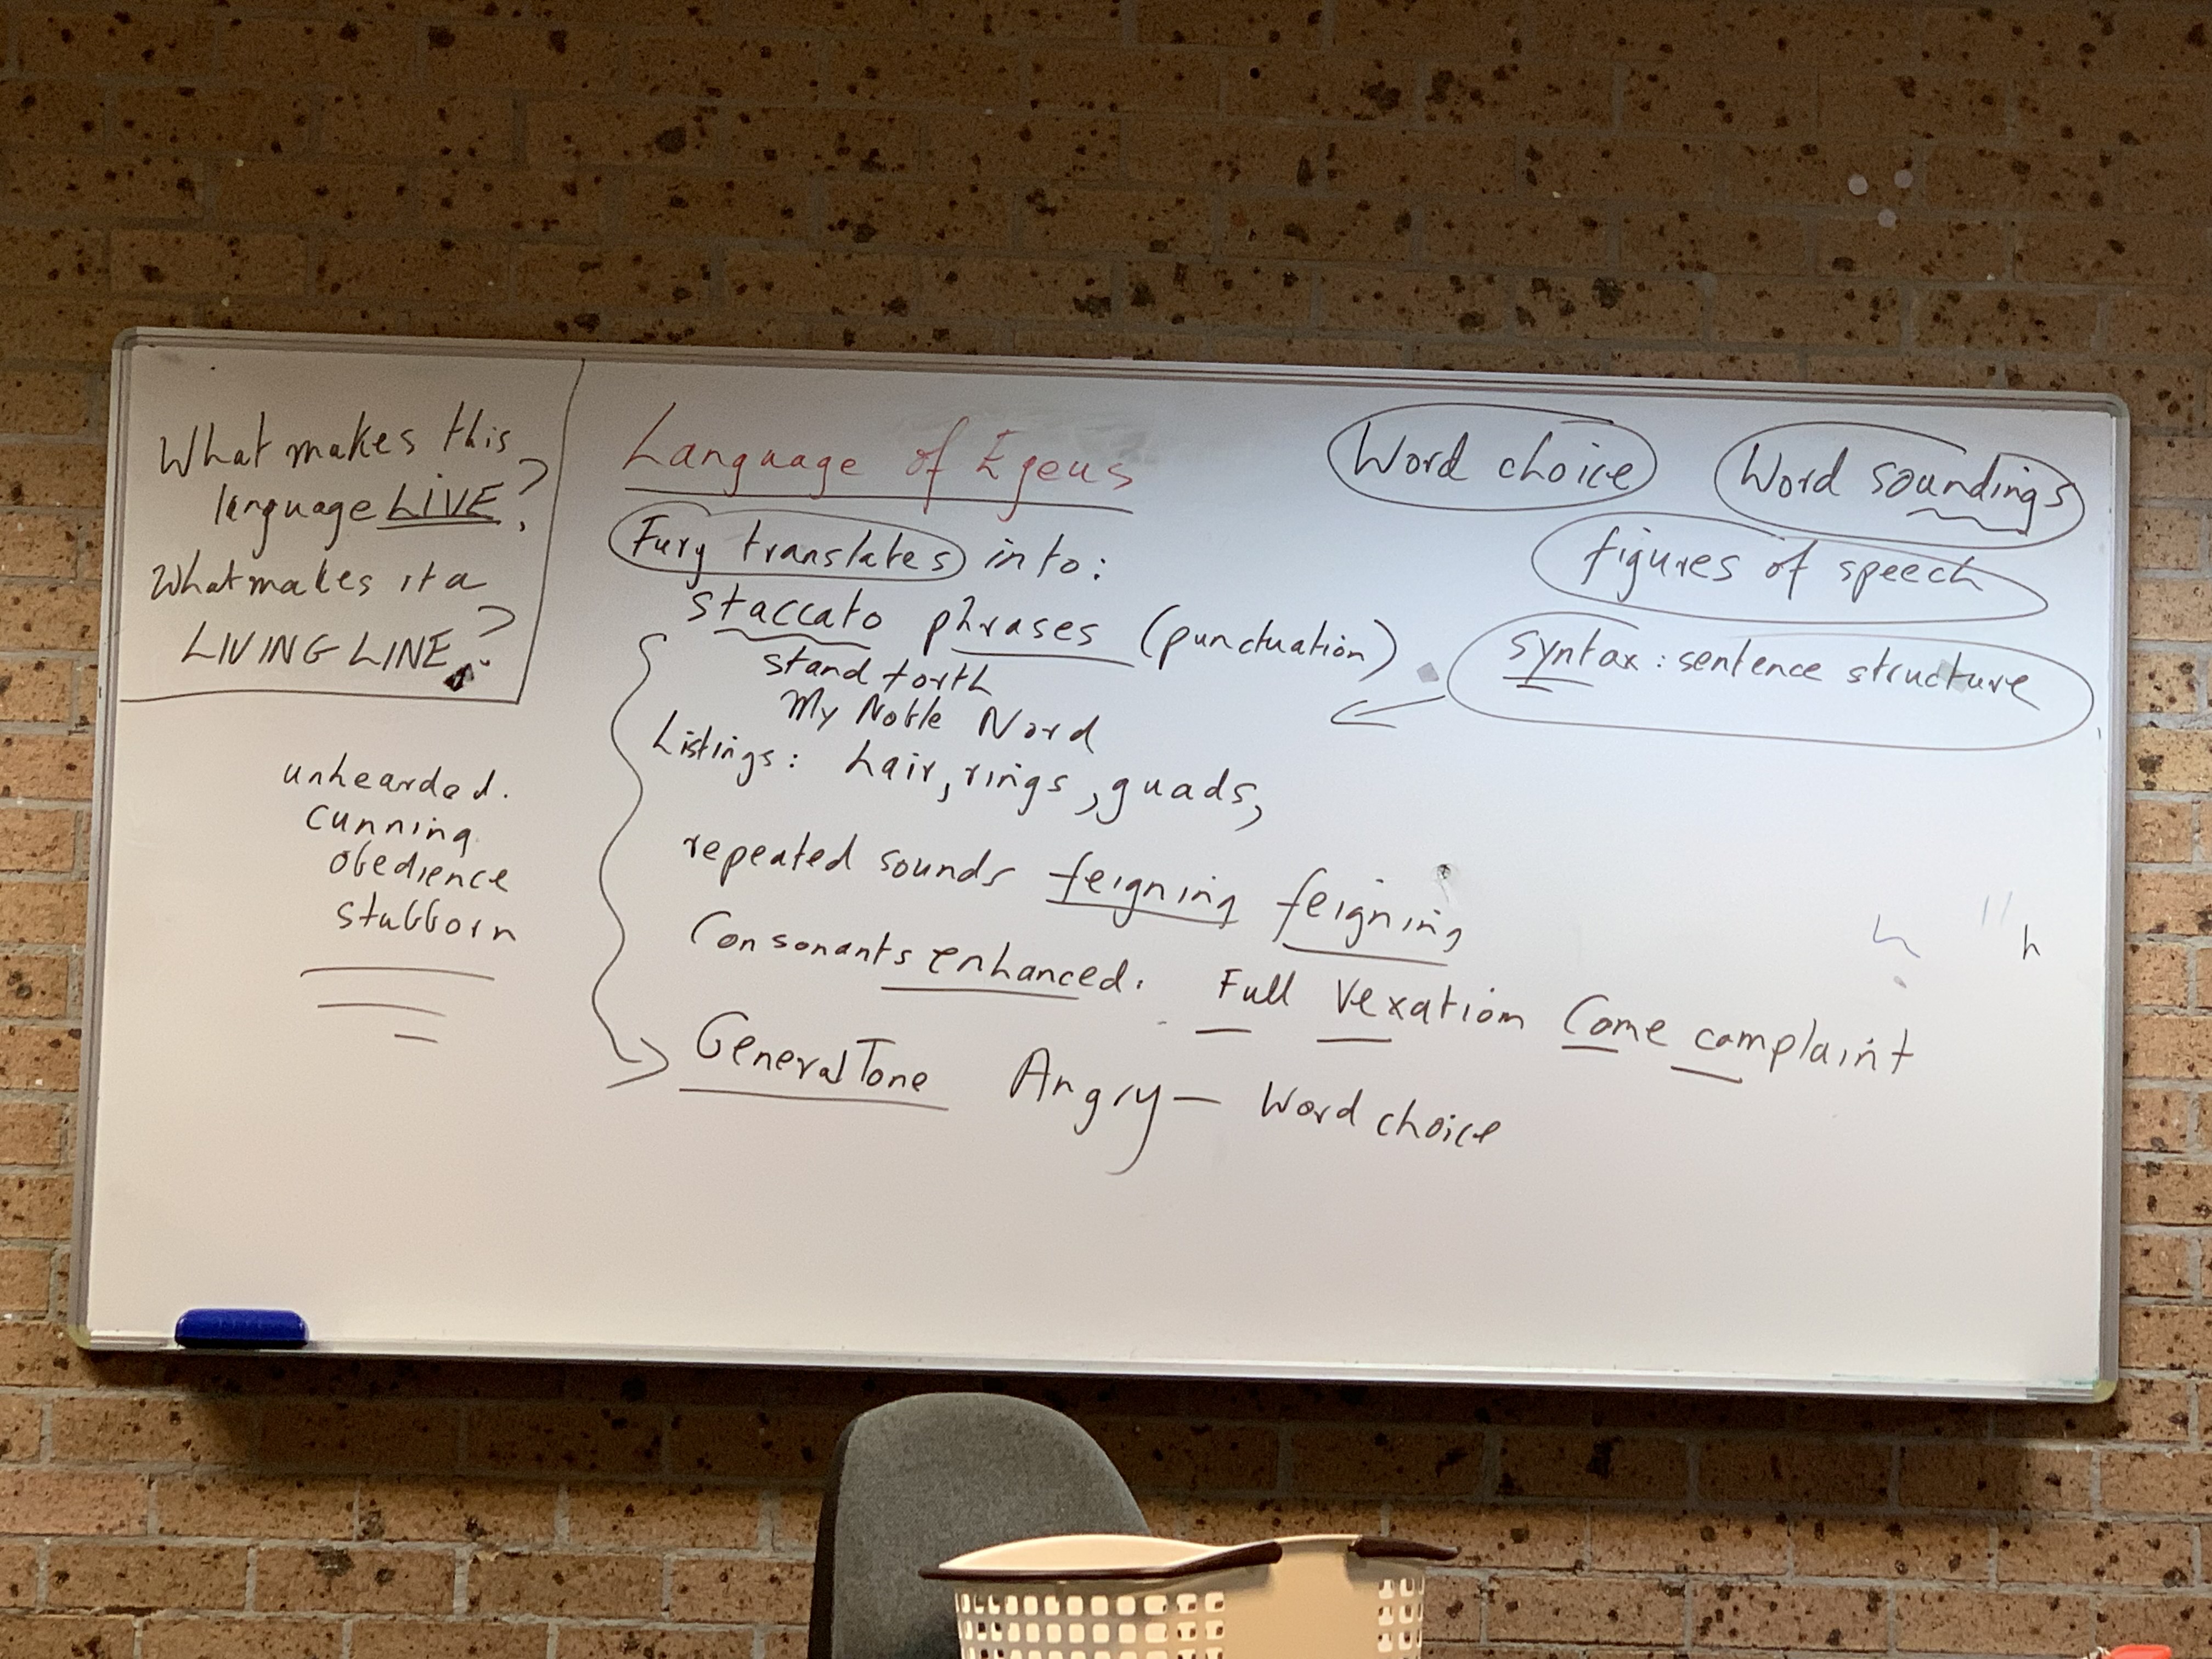 What makes this
language LIVE?
What makes it a
LIVING LINE?
unhearded.
cunning
obedience
stubborn
Language of Egeus
Fury translates into:
staccato phrases (punctuation)
stand forth
My Noble Nord
Listings: hair, rings, guads,
repeated sounds feigning feigning
Consonants enhanced. Full Vexation Come complaint
General Tone Angry — Word choice
Word choice
Word soundings
figures of speech
syntax: sentence structure
h